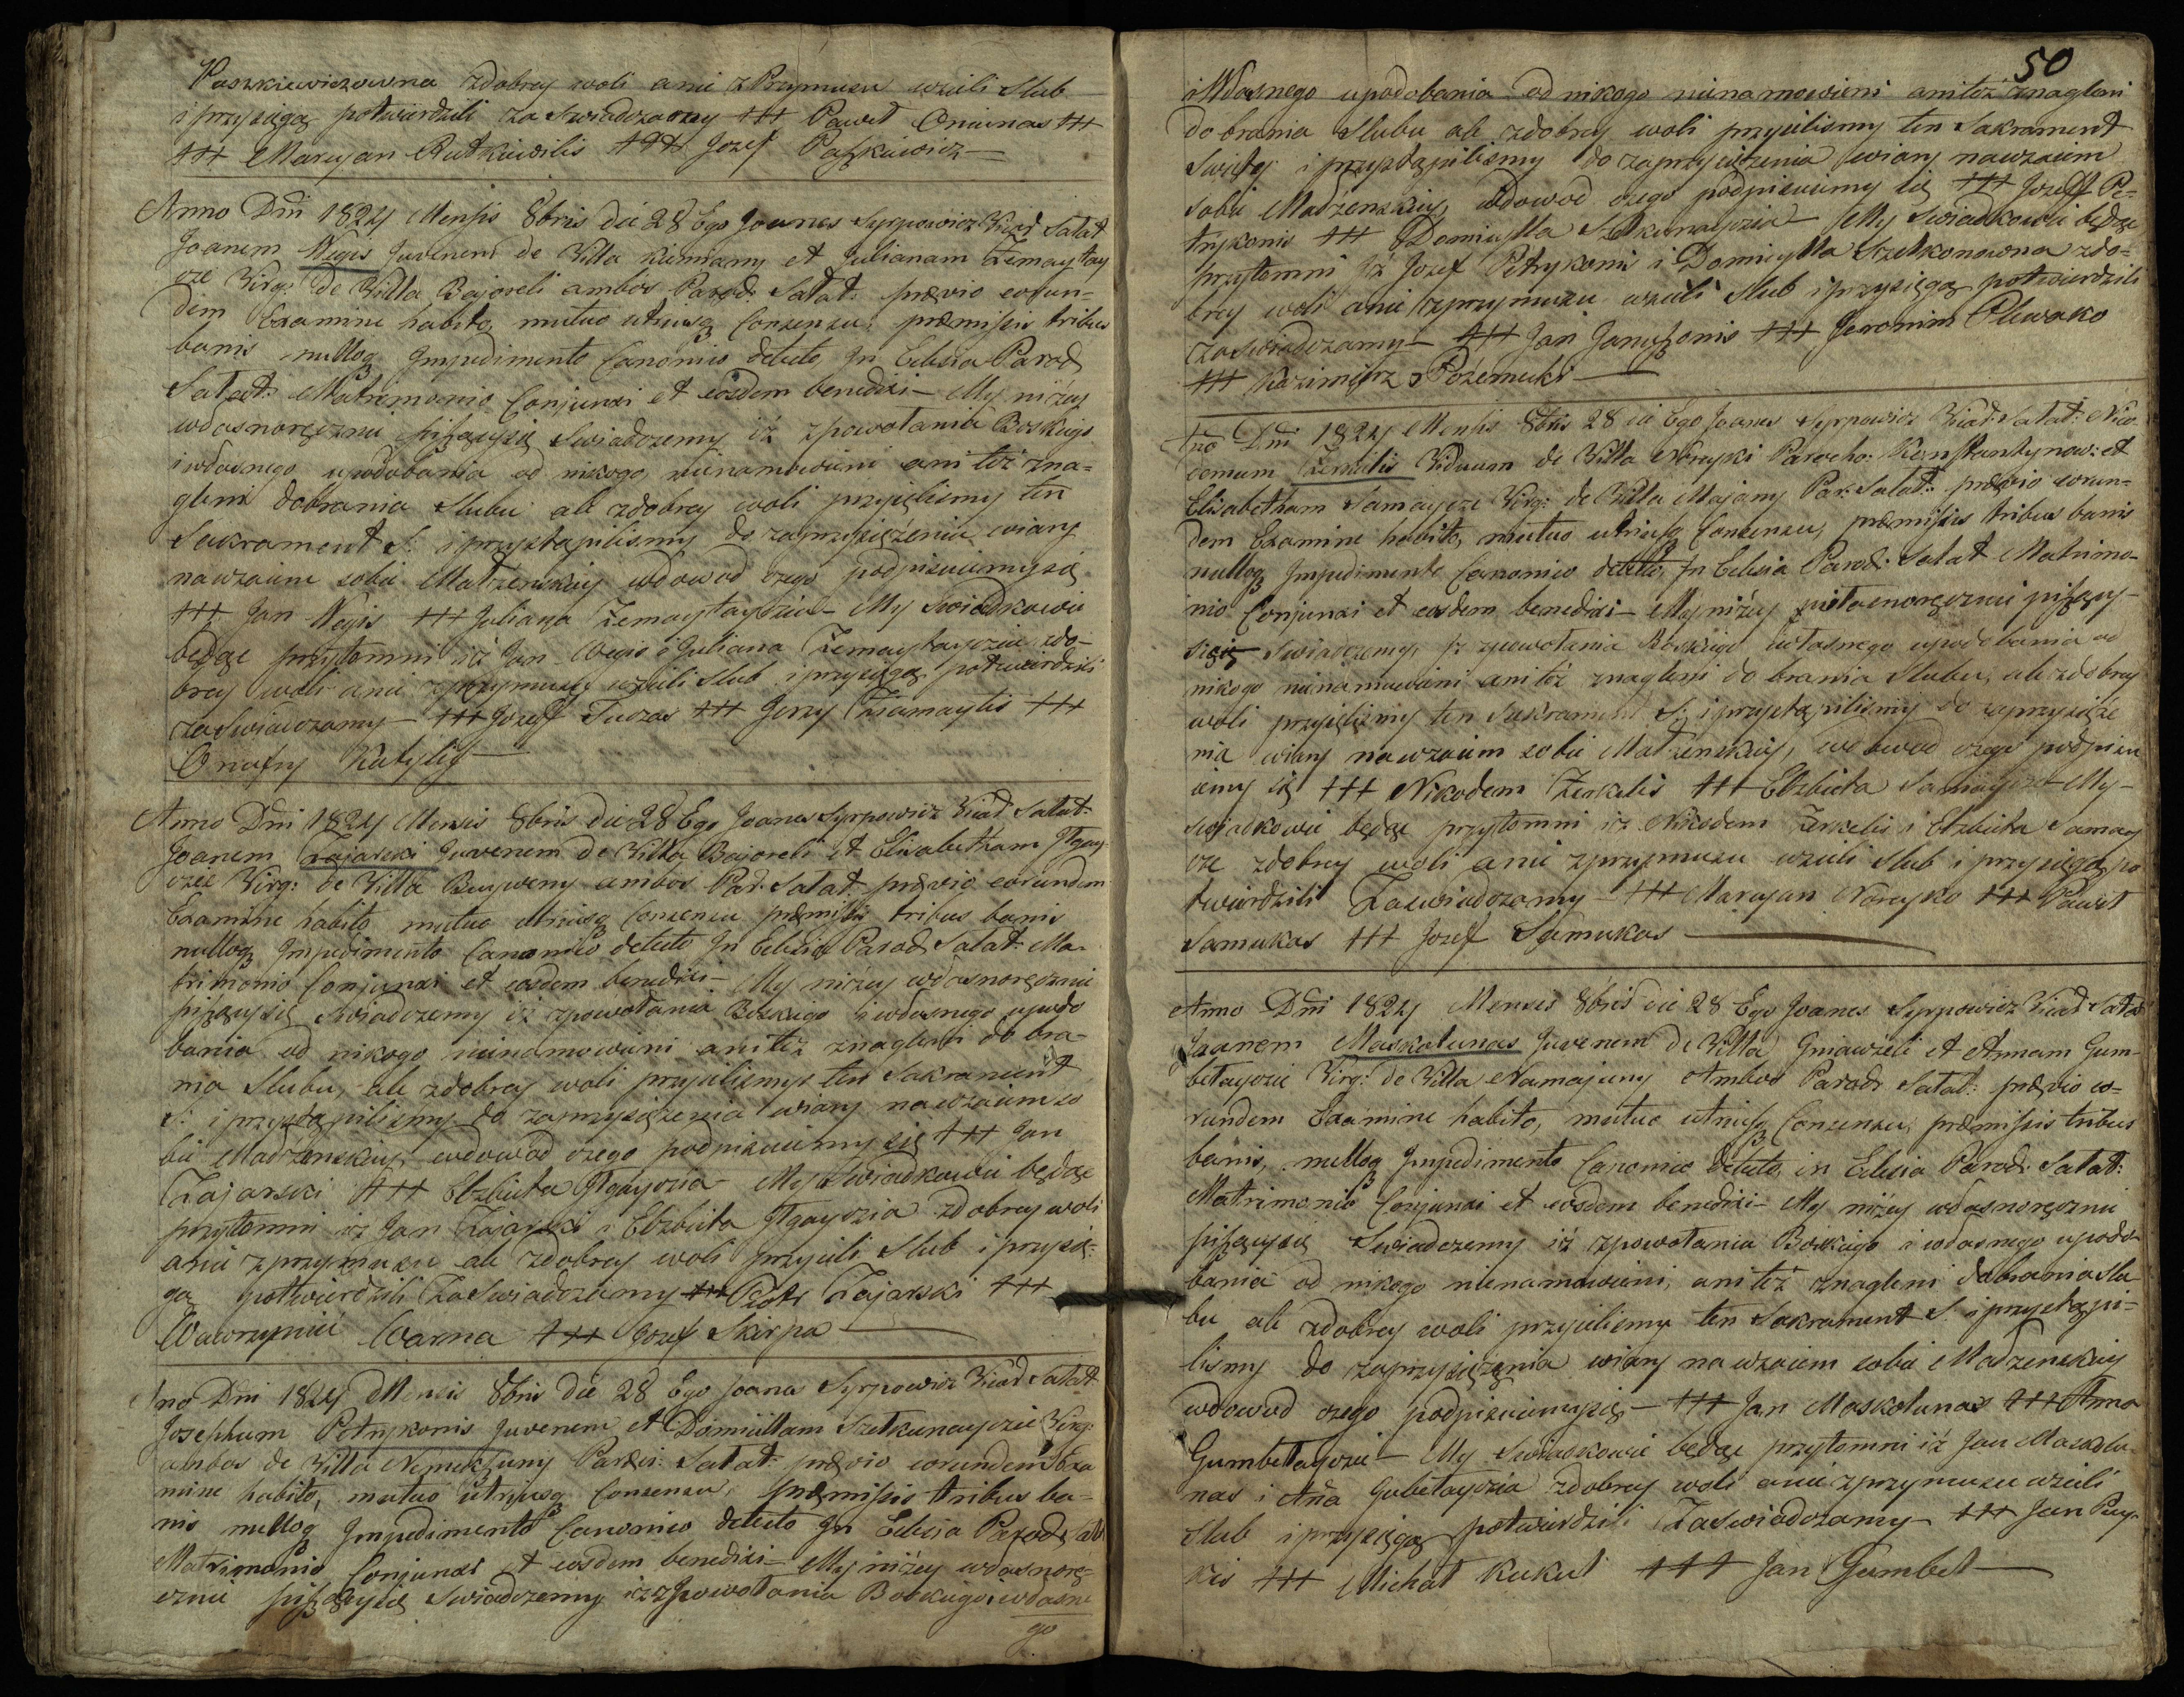 Paszkiewiczowna zdobrey woli anie z Przymusu wzieli Slub
i przysięgą potwierdzili za Swiadczamy +++ Paweł Oniunas +++
+++ Maryan Rutkiewilis +++ Jozef Paszkiewicz —
Anno Dni 1824 Mensis 8bris die 28 Ego Joanes Syrpowicz Vicad Salat
Joanem Wegis Juvenem de Villa Kiemiany et Julianam Żemaytay
cze Virg: de Villa Bajoreli ambos Paroch: Salat: prævio eorun-
dem Examine habito, mutuo utriusq Consensu, præmissis tribus
banis nulloq Impedimento Canonico detecto, In Eclesia Paroch
Salat: Matrimonio Conjunxi et eosdem benedixi — My niżey
własnoręcznie piszącysię Swiadczemy iż zpowołania Boskiego
i własnego upodobania od nikogo nienamowieni ani też zna=
gleni dobrania Slubu ale zdobrey woli przyięlismy ten
Sakrament S. i przystąpilismy do zaprzysiężenia wiary
nawzaiem sobie Małżenskiey wdowod czego podpisuiemysię
+++ Jan Wegis +++ Juliana Żemaytayczia — My Swiadkowie
będąc przytomni iż Jan Wegis i Juliana Żemaytayczia zdo-
brey woli anie zprzymusu wzieli Slub i przysięgą potwierdzili
zaswiadczamy — +++ Jozeff Tuczas +++ Jerzy Żiamaytis +++
Onufry Kutylis —
Anno Dni 1824 Mensis 8bris die 28 Ego Joanes Syrpowicz Vicad Salat.
Joanem Zajarski Juvenem de Villa Bajoreli et Elisabetham Jtgay
czee Virg: de Villa Burweny ambos Par. Salat. prævio eorundem
Examine habito mutuo utriusq Consensu præmissis tribus banis
nulloq Impedimento Canonico detecto In Eclesia Paroch Salat: Ma-
trimonio Conjunxi et eosdem benedixi — My niżey własnoręcznie
piszącysię Swiadczemy iż zpowołania Boskiego i własnego upodo
bania od nikogo nienamowieni ani też znagleni do bra-
nia Slubu, ale zdobrey woli przyielismy ten Sakrament
S. i przystąpilismy do zaprzysiężenia wiary nawzaiem so
bie Madżenskiey wdowod czego podpisuiemy się +++ Jan
Zajarski +++ Elzbieta Jtgayczia — My Swiadkowie będąc
przytomni iż Jan Zajarski i Elzbieta Jtgayczia zdobrey woli
anie zprzymusu ale zdobrey woli przyieli Slub i przysię-
gą potwierdzili Zaswiadczamy +++ Piotr Zajarski +++
Wawrzyniec Warna +++ Jozef Skirpa —
Ano Dni 1824 Mensis 8bris die 28 Ego Joanes Syrpowicz Vicad Salat.
Josephum Petrykonis Juvenem et Domicillam Szetkunayczie Virg:
ambos de Villa Nemekszuny Paroch: Salat: prævio eorundem Exa
mine habito, mutuo utriusq Consensu, præmissis tribus ba=
nis nulloq Impedimento Canonico detecto In Eclesia Paroch Salat
Matrimonio Conjunxi et eosdem benedixi — My niżey własnorę=
cznie piszącysię Swiadczemy iż zpowołania Boskiego i własne
go
50
i Własnego upodobania od nikogo nienamowieni anitoż znagleni
do brania Slubu ale zdobrey woli przyielismy ten Sakrament
Swięty i przystąpilismy do zaprzysiężenia wiary nawzaiem
sobie Madżenskiey wdowod czego podpisuiemy się +++ Jozeff Pe-
trykonis +++ Domicylla Szetkunayczia — My Swiadkowie będąc
przytomni iż Jozef Petrykonis i Domicylla Szetkonowna zdo=
brey woli anie zprzymusu wzieli Slub i przysięgą potwierdzili
Zaswiadczamy — +++ Jan Januszonis +++ Jeronim Plewako
+++ Kazimierz Pożemecki —
Ano Dni 1824 Mensis 8bris 28 die Ego Joanes Syrpowicz Vicad: Salat: Nico-
demum Żenkilis Viduum de Villa Noreyki Parocho: Konstantynow: et
Elisabetham Samaycze Virg: de Villa Majany Par: Salat: prævio eorun-
dem Examine habito, mutuo utriusq Consensu, præmissis tribus banis
nulloq Impedimento Canonico detecto, In Eclesia Paroch: Salat Matrimo-
nio Conjunxi et eosdem benedixi — My niżey własnoręcznie piszący-
się Swiadczemy, iż zpowołania Boskiego iwłasnego upodobania od
nikogo nienamowieni ani też znagleni do brania Slubu, ale zdobrey
woli przyięlismy ten Sakrament S. i przystąpilismy do zaprzysięże
nia wiary nawzaiem sobie Małżenskiey, wdowod czego podpisu
iemy się +++ Nikodem Żenkelis +++ Elzbieta Samaycze — My —
Swiadkowie będąc przytomni iż Nikodem Żenkelis i Elzbieta Samay
cze zdobrey woli anie zprzymusu wzieli Slub i przysięgą po
twierdzili Zaswiadczamy — +++ Maryan Noreyko +++ Paweł
Samukas +++ Jozef Samukas —
Anno Dni 1824 Mensis 8bris die 28 Ego Joanes Syrpowicz Vicad Salat
Joanem Maskolunas Juvenem de Villa Gniawzeli et Annam Gum-
betayczie Virg: de Villa Namajuny Ambos Paroch Salat: prævio eo-
rundem Examine habito, mutuo utriusq Consensu, præmissis tribus
banis, nulloq Impedimento Canonico detecto in Eclesia Paroch: Salat:
Matrimonio Conjunxi et eosdem benedixi — My niżey własnoręcznie
piszącysię Swiadczemy iż zpowołania Boskiego i własnego upodo-
bania od nikogo nienamowieni, ani też znagleni dobrania Slu
bu ale zdobrey woli przyielismy ten Sakrament S. i przystąpi=
lismy do zaprzysiężenia wiary nawzaiem sobie Madżenskiey
wdowod czego podpisuiemysię — +++ Jan Maskolunas +++ Anna
Gumbetayczie — My Swiadkowie będąc przytomni iż Jan Maskolu
nas i Ana Gubetayczia zdobrey woli anie zprzymusu wzieli
Slub i przysięgą potwierdzili Zaswiadczamy — +++ Jan Puy-
kis +++ Michał Kukut +++ Jan Gumbet —